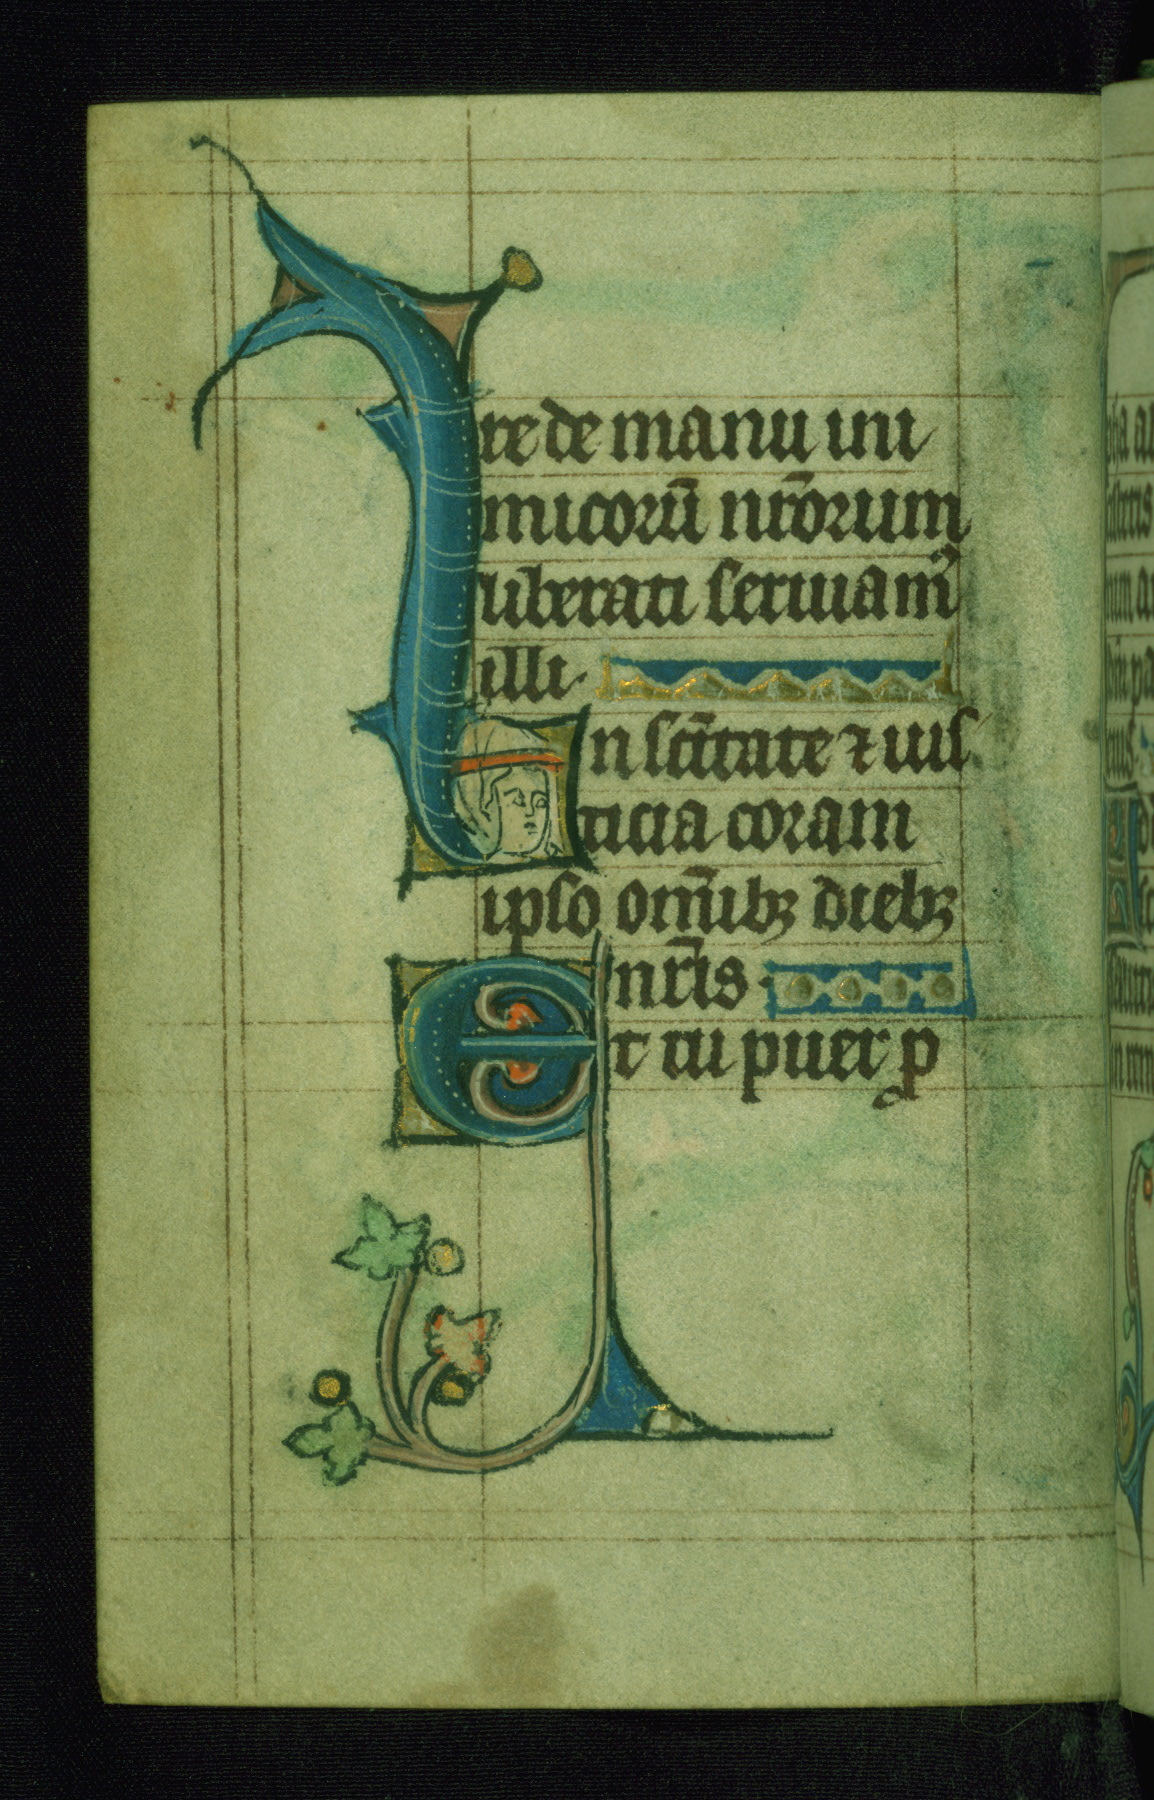 re de manu ini
micorū nr̄orum
liberati seruiam᷒
illi·
In sc̄itate ⁊ ius
ticia coram
ipso om̄ibꝫ diebꝫ
nr̄is·
Et tu puer ꝓ